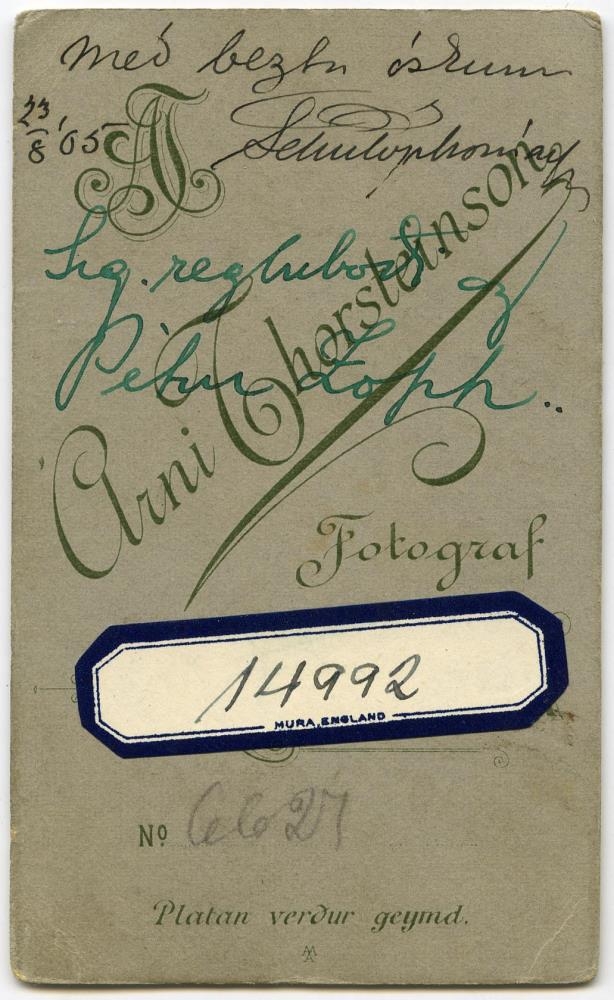 með beztu óskum
23/8 '05
ÁT
Sig. regluboði
af
Pétur Zoph.
Árni Thorsteinson
Fotograf
14992
MURA, ENGLAND
No 6627
Platan verður geymd.